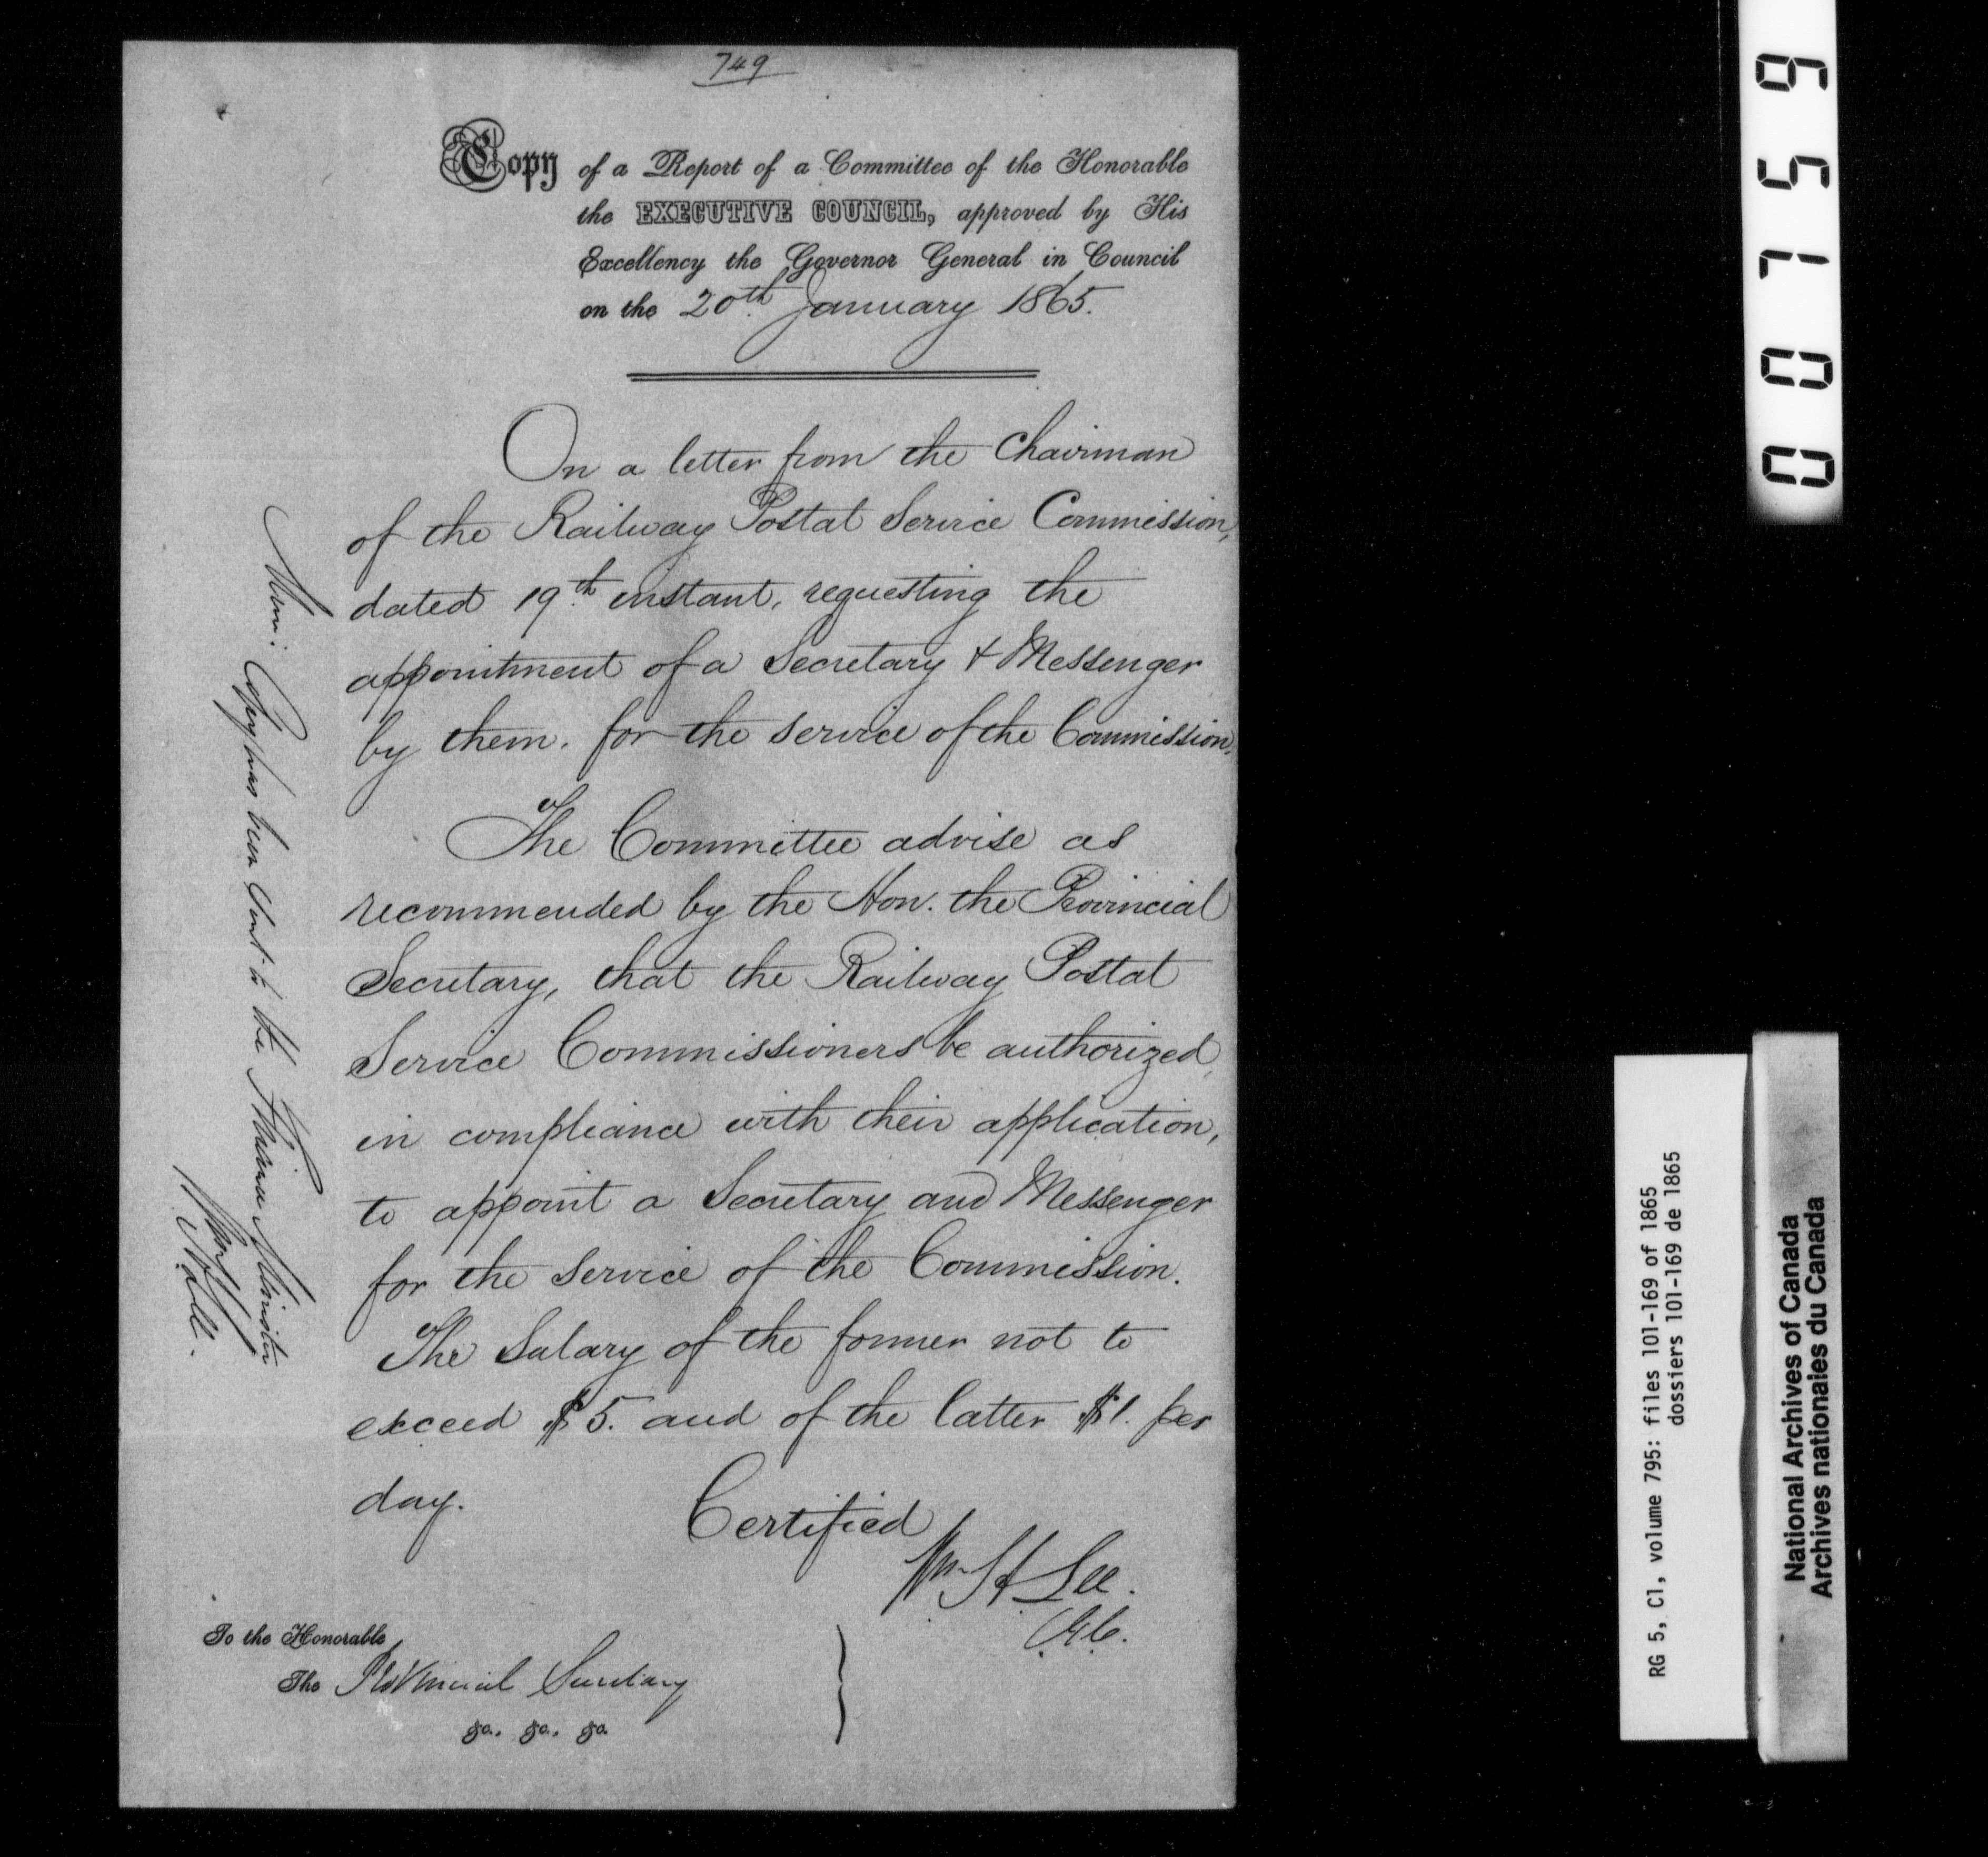 749
Copy of a Report of a Committee of the Honorable
the EXECUTIVE COUNCIL, approved by His
Excellency the Governor General in Council
on the 20th January 1865.
On a letter from the Chairman
of the Railway Postal Service Commission,
dated 19th instant, requesting the
appointment of a Secretary & Messenger
by them. for the service of the Commission.
The Committee advise as
recommended by the Hon. the Provincial
Secretary, that the Railway Postal
Service Commissioners be authorized,
in compliance with their application,
to appoint a Secretary and Messenger
for the service of the Commission.
The Salary of the former not to
exceed $5. and of the latter $1. per
day.
Certified
Wm H Lee.
C.E.C.
To the Honorable
The Provincial Secretary
&c. &c. &c.
Mem: Copy has been sent to the Finance Minister
RG 5, C1, volume 795: files 101-169 of 1865
dossiers 101-169 de 1865
National Archives of Canada
Archives nationales du Canada